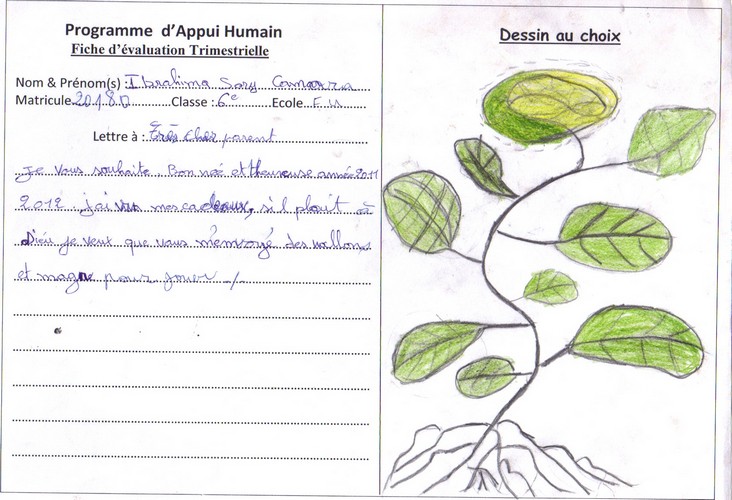 Programme d'Appui Humain
Fiche d'évaluation Trimestrielle
Nom & Prénom(s) : Ibrahima Sory Camara
Matricule 20180 Classe : 6e Ecole E U
Lettre à : Très cher parent
Je vous souhaite Bon noé et theureuse année 2011
2012. j'ai vus mes cadeaux, s'il plait à
Dieu je veux que vous m'envoyé des vallons
et pour jouer ./
Dessin au choix